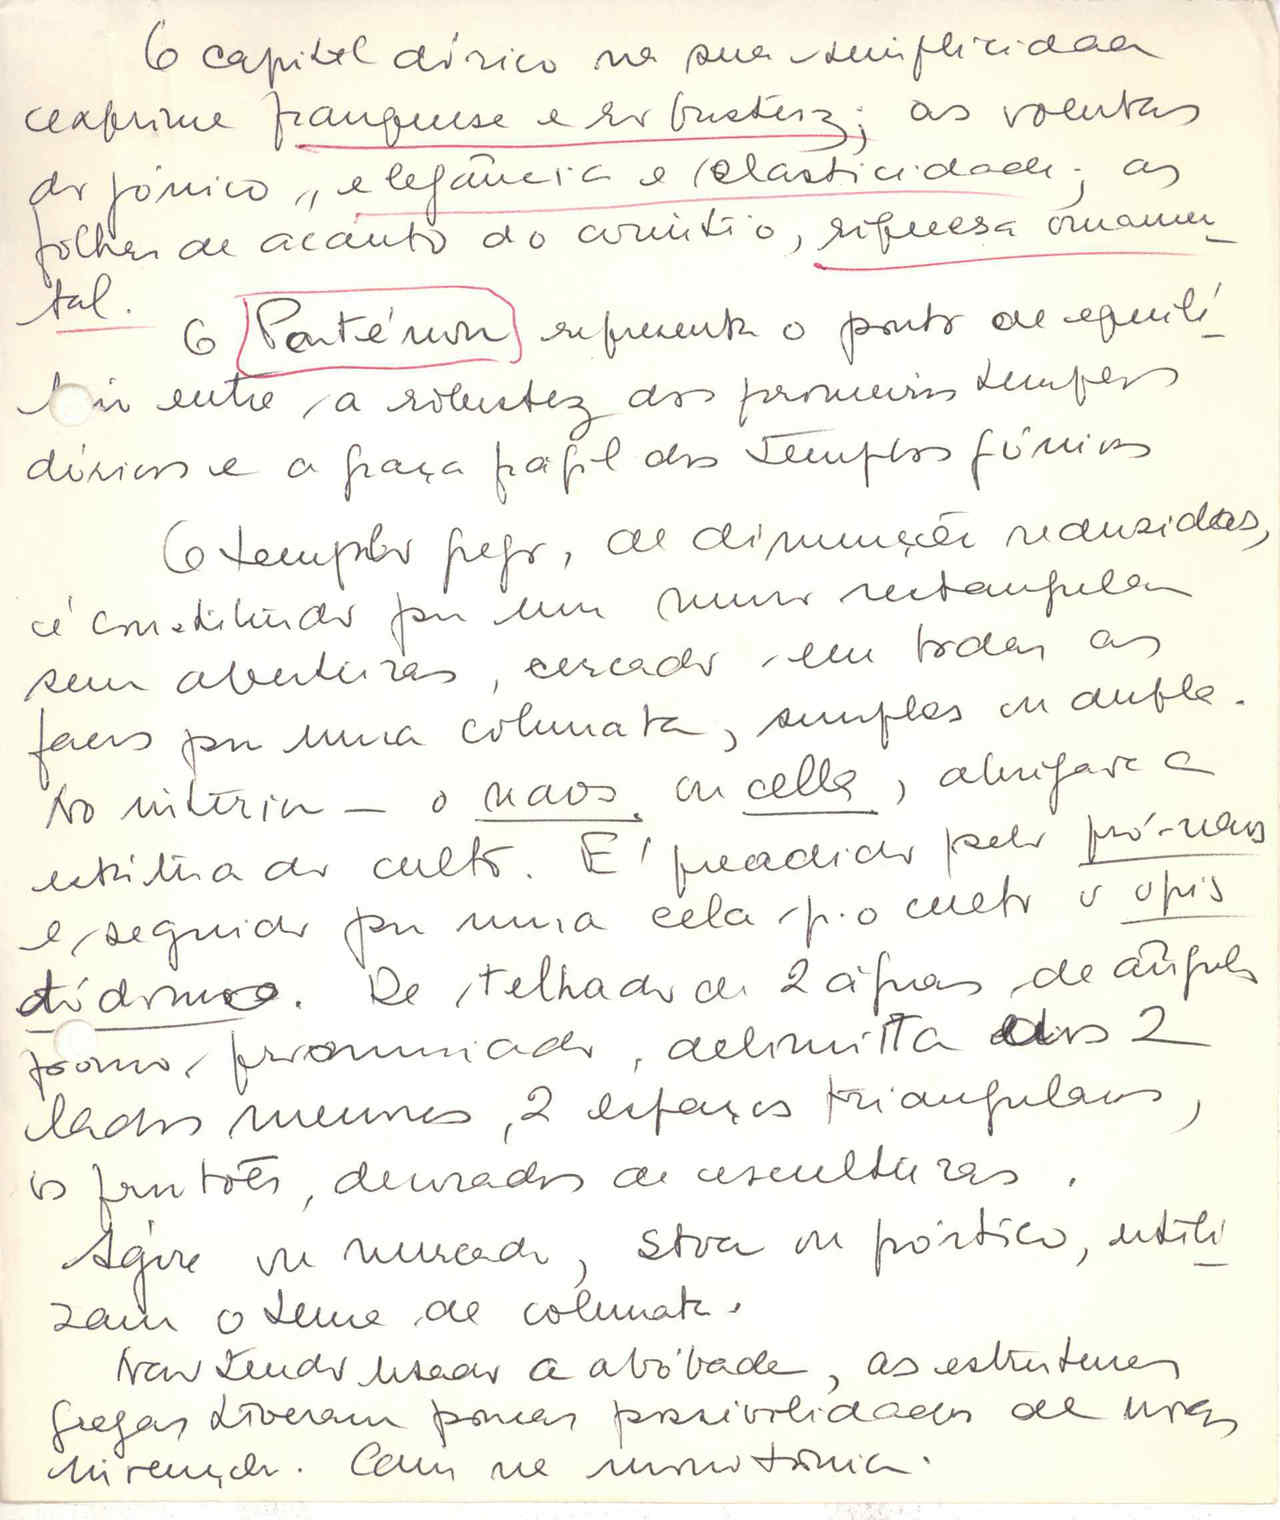 O capitel dórico na sua simplicidade
exprime franqueza e robustez; as volutas
do jónico, elegância e elasticidade; as
folhas de acanto do coríntio, riqueza ornamen-
tal.
O Parténon representa o ponto de equilí-
brio entre a robustez dos primeiros templos
dóricos e a graça frágil dos templos jónicos
O templo grego, de dimensões reduzidas,
é constituído por um muro rectangular
sem aberturas, cercado em todas as
faces por uma colunata, simples ou dupla.
No interior – o naos ou cella, abrigava a
estátua do culto. É precedido pelo pró-naos
e seguido por uma cela p. o culto o opis
tódomo. De telhado de 2 águas de ângulo
pouco pronunciado, delimita dos 2
lados menores, 2 espaços triangulares,
os frontões, decorados de esculturas.
Ágora ou mercado, stoa ou pórtico, utili-
zam o tema de colunata.
Não tendo usado a abóbada, as estruturas
gregas tiveram poucas possibilidades de nova
invenção. Caiu na monotonia.